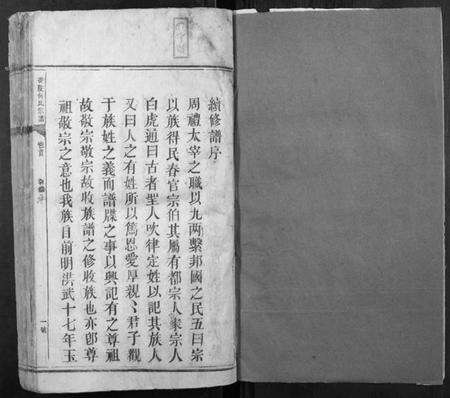 續修譜序
周禮太宰之職以九兩繫邦國之民五曰宗
以族得民春官宗伯其屬有都宗人家宗人
白虎通曰古者聖人吹律定姓以記其族人
又曰人之有姓所以篤恩愛厚親〻君子觀
于族姓之義而譜牒之事以興記有之尊祖
故敬宗敬宗故收族譜之修收族也亦卽尊
祖敬宗之意也我族自前明洪武十七年玉
卷首
一